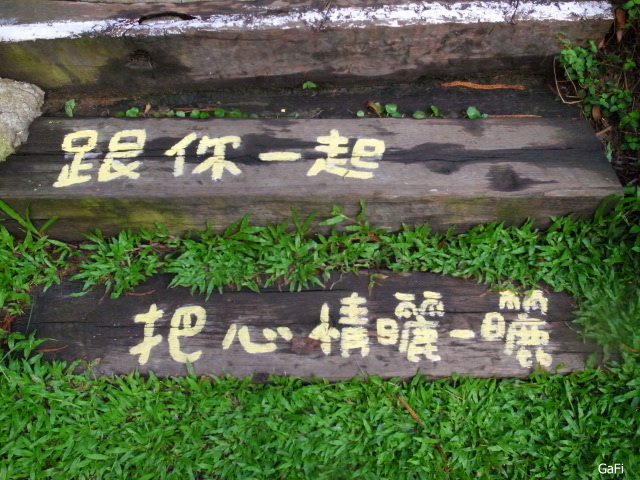 跟你一起
把心情曬一曬
GaFi